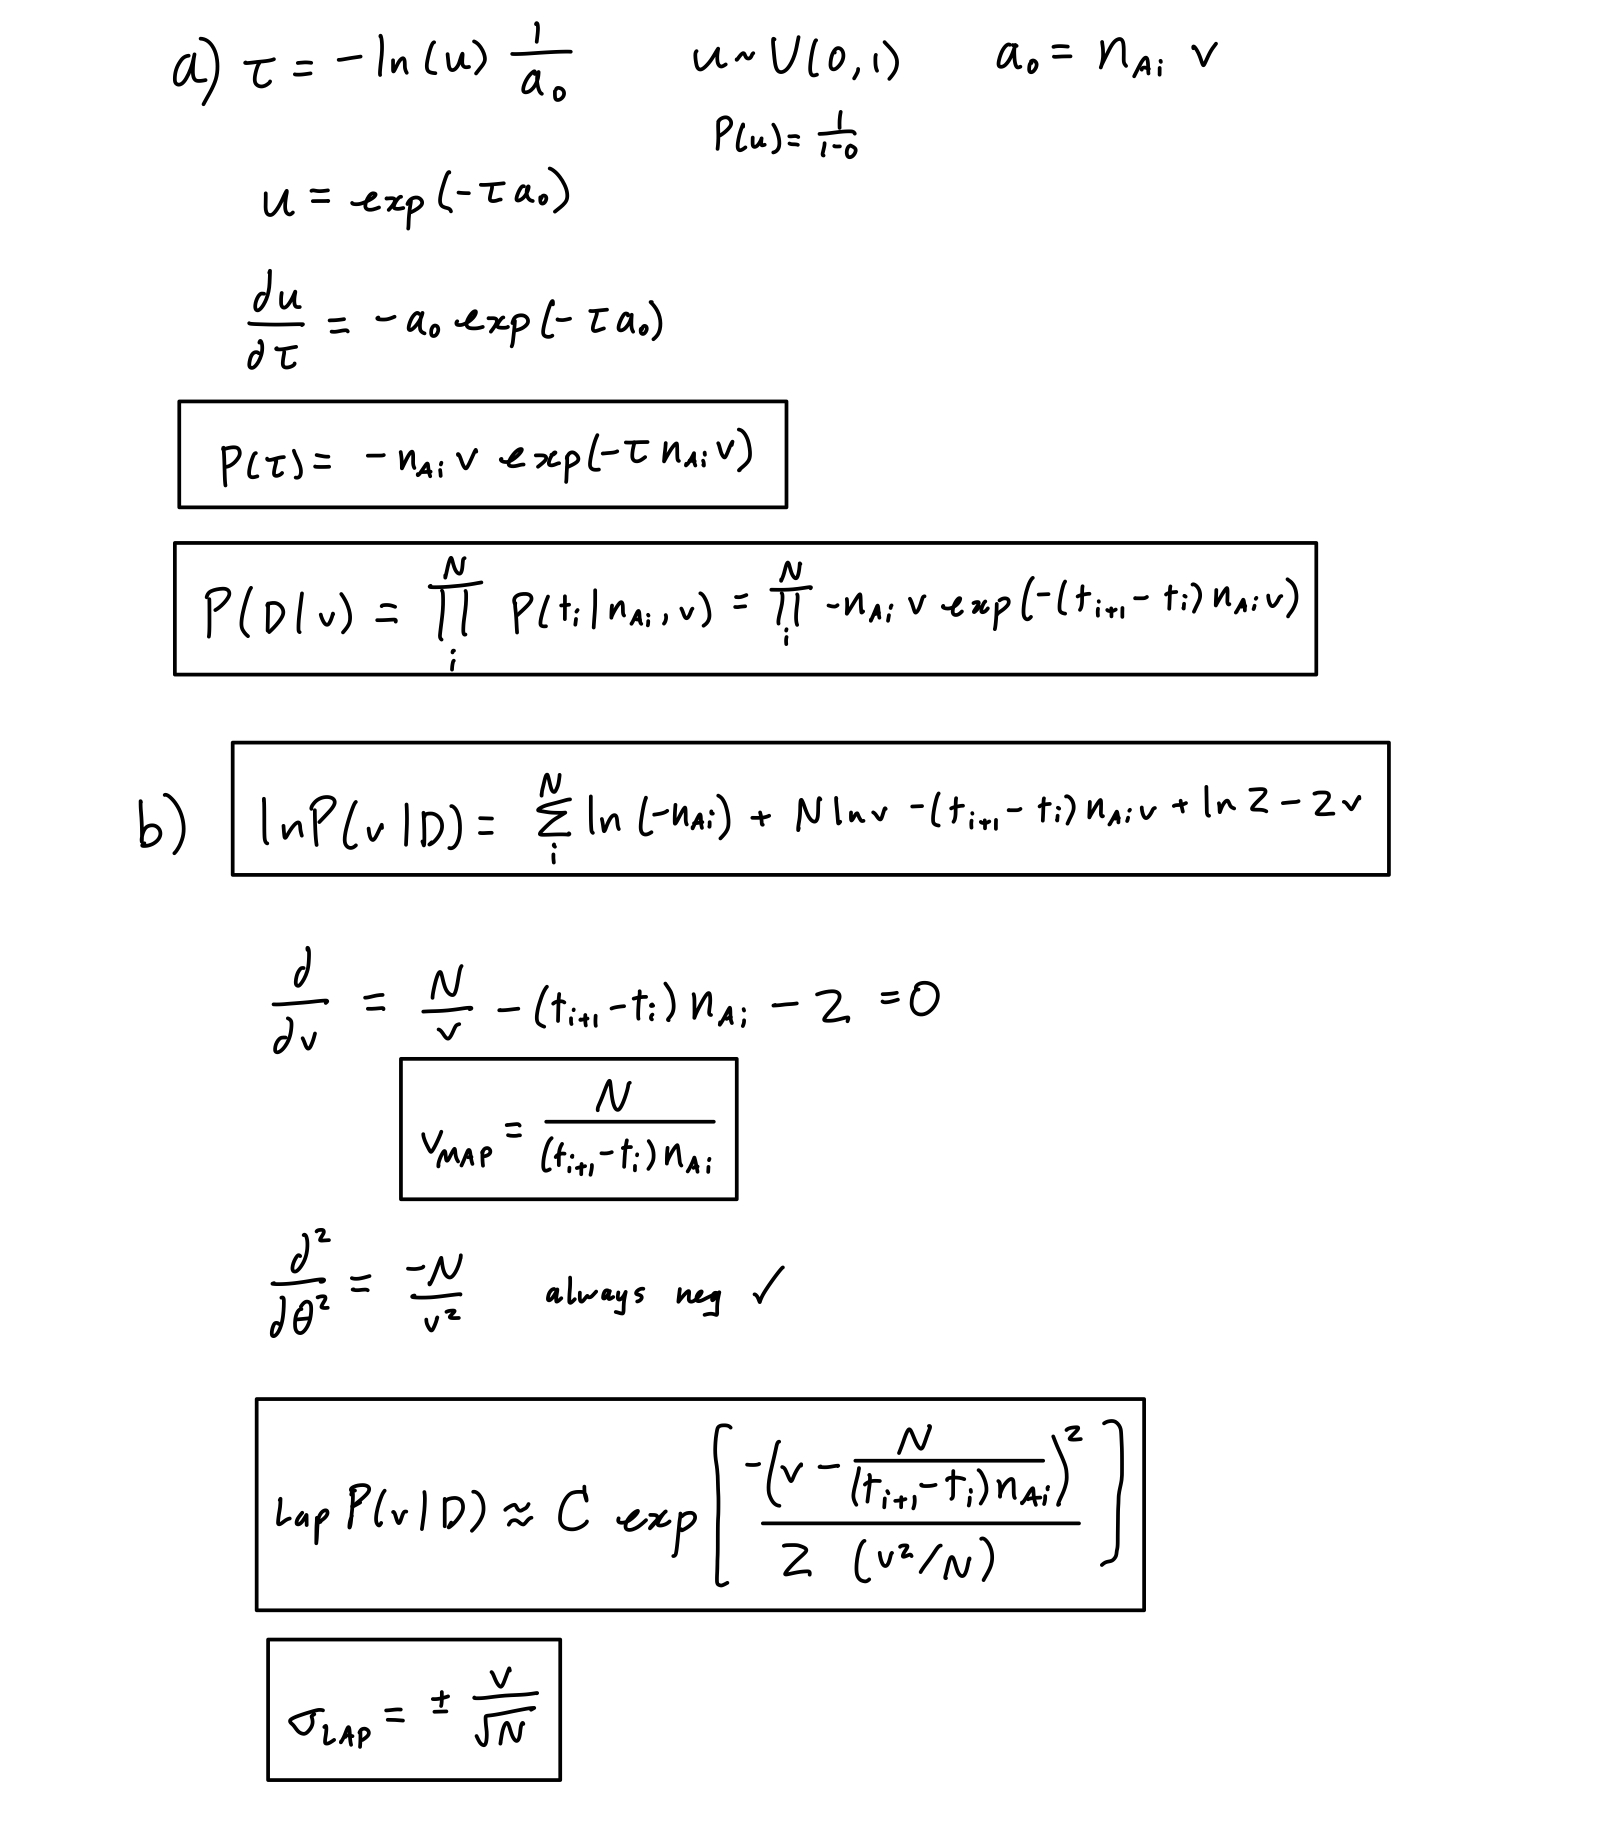 a) τ = -ln(u) 1/a₀    u ~ U(0,1)    a₀ = n_{Ai} v
P(u) = 1/(1-0)
u = exp(-τ a₀)
du/dτ = -a₀ exp(-τ a₀)
P(τ) = -n_{Ai} v exp(-τ n_{Ai} v)
P(D|v) = ∏_i^N P(t_i | n_{Ai}, v) = ∏_i^N -n_{Ai} v exp(-(t_{i+1} - t_i) n_{Ai} v)
b) lnP(v|D) = ∑_i^N ln(-n_{Ai}) + N ln v -(t_{i+1} - t_i) n_{Ai} v + ln 2 - 2v
d/dv = N/v - (t_{i+1} - t_i) n_{Ai} - 2 = 0
v_{MAP} = N/((t_{i+1} - t_i) n_{Ai})
d²/dθ² = -N/v²    always neg ✓
Lap P(v|D) ≈ C exp[ -(v - N/((t_{i+1} - t_i) n_{Ai}))² / (2 (v²/N)) ]
σ_{LAP} = ± v/√N